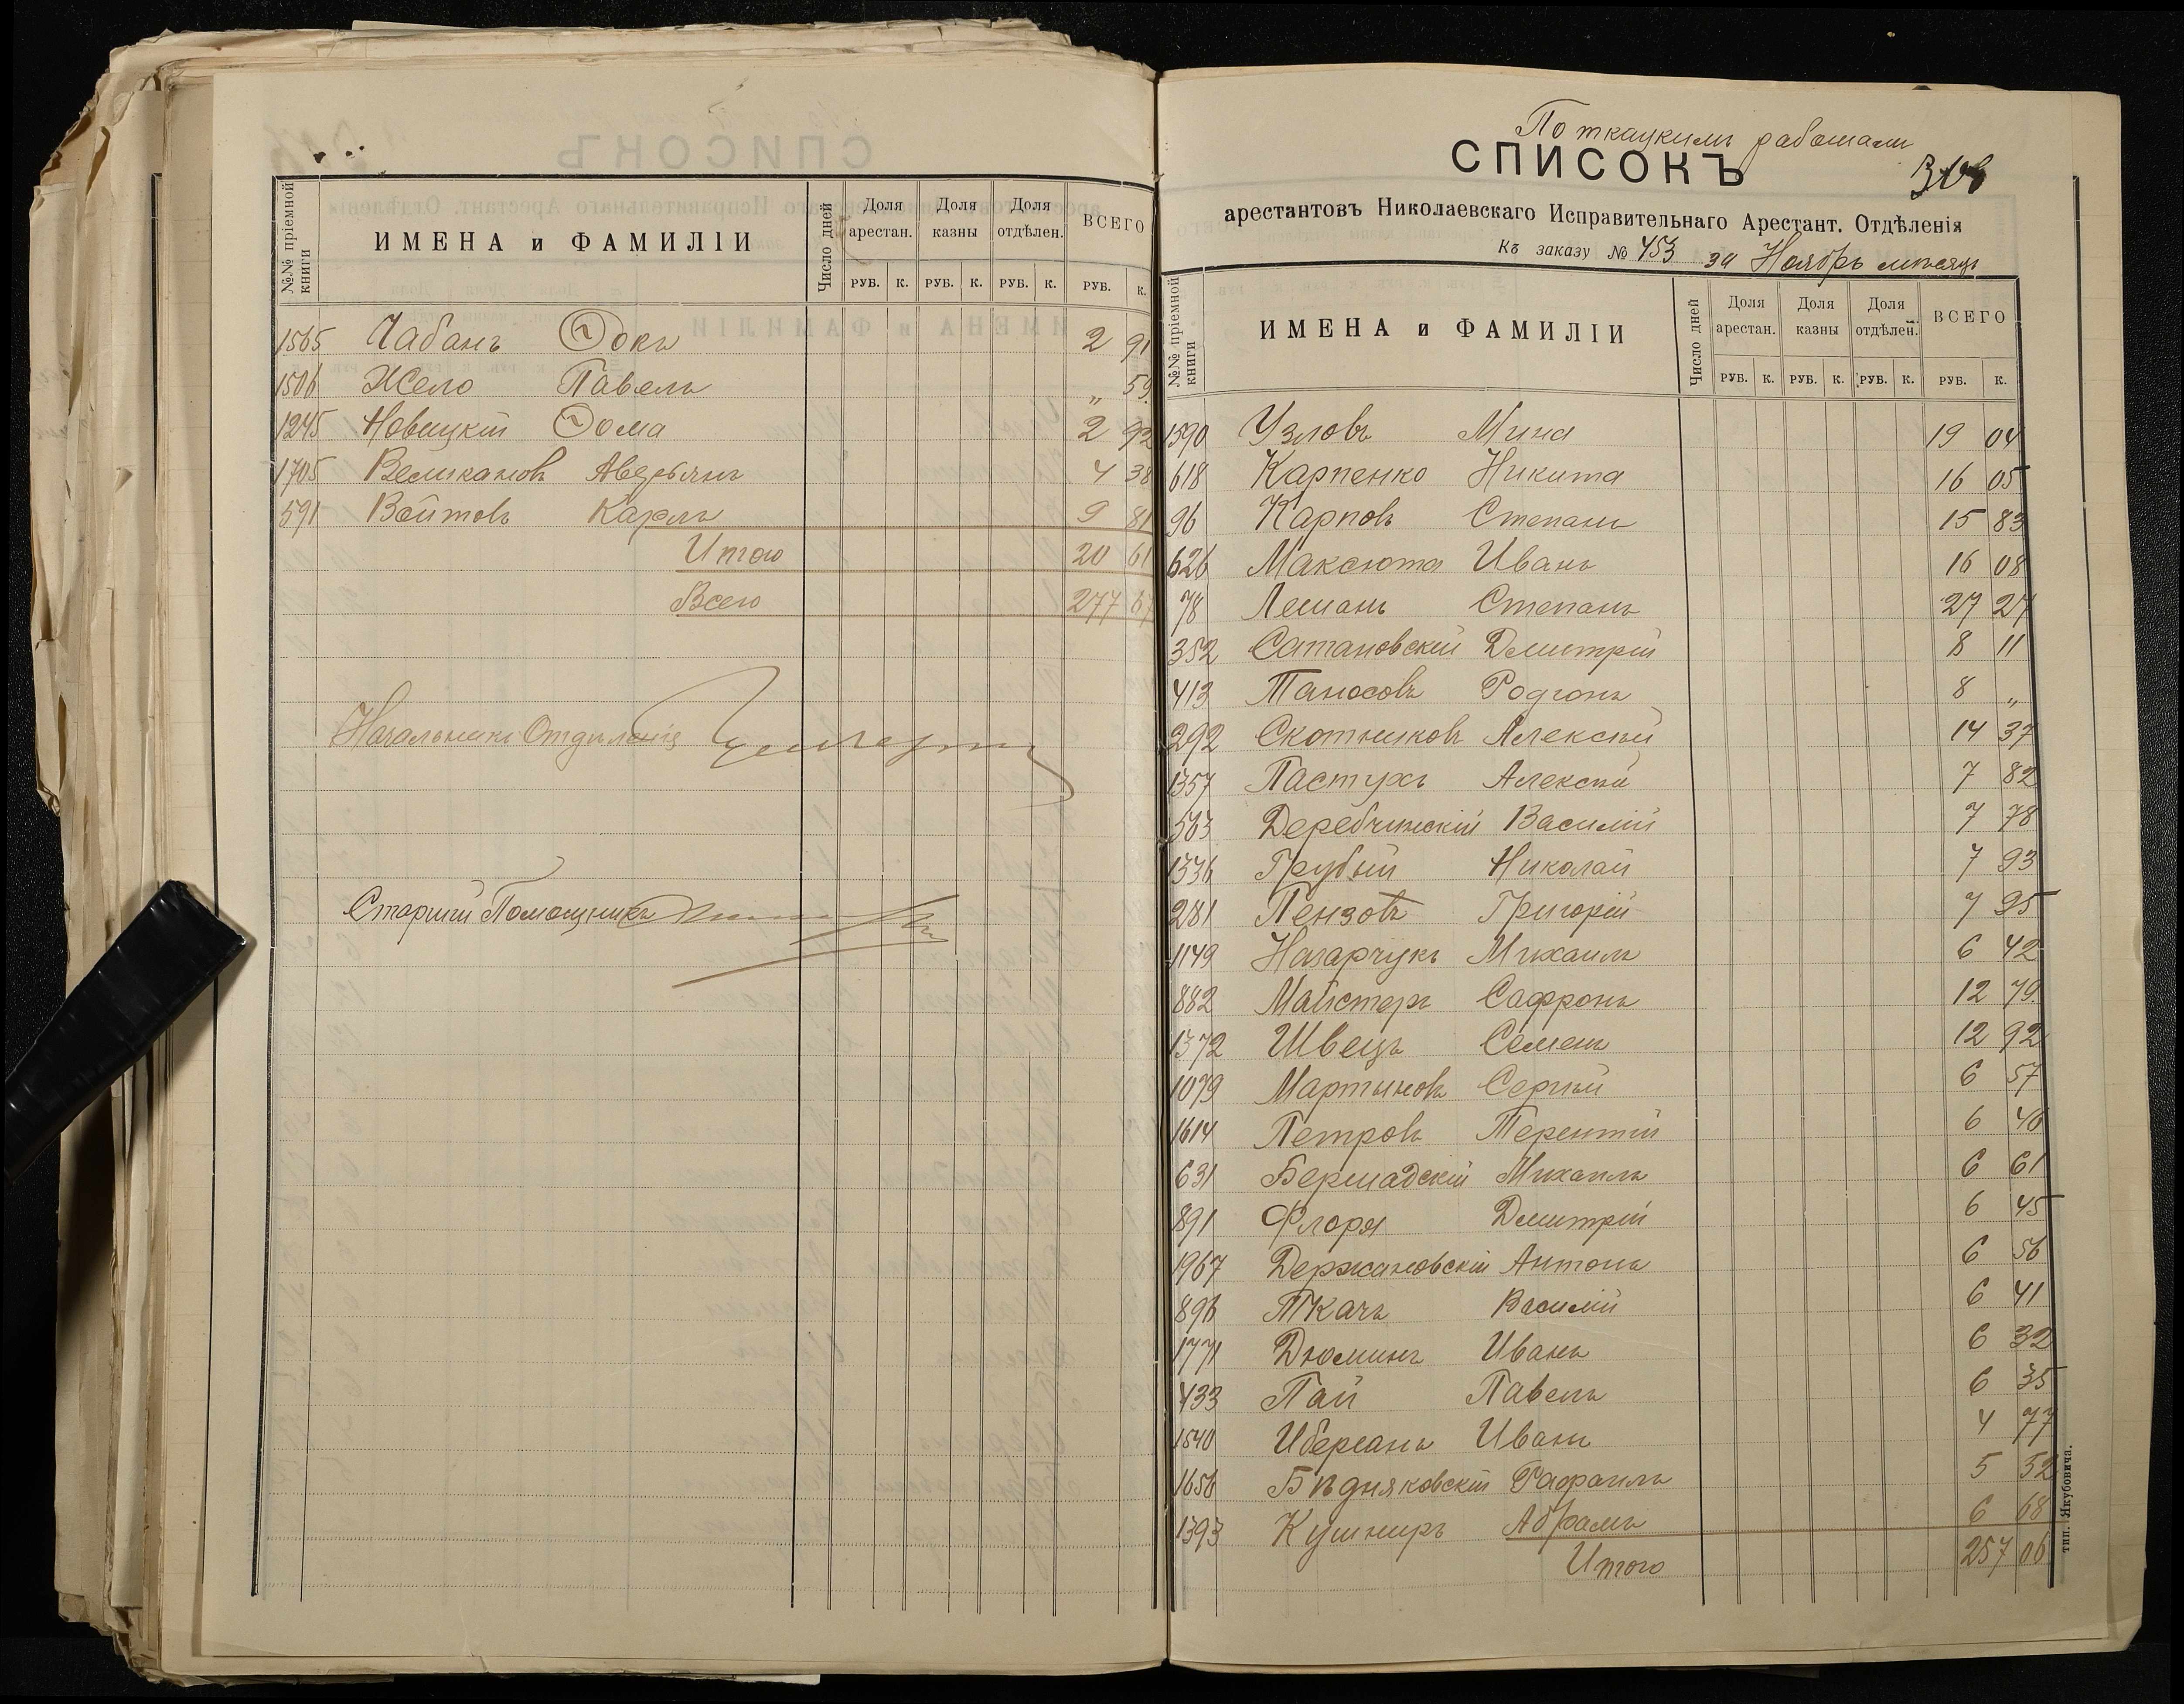 №№ пріемной книги
ИМЕНА и ФАМИЛІИ
Число дней
Доля арестан.
Доля казны
Доля отдѣлен.
ВСЕГО
РУБ. К. РУБ. К. РУБ. К. РУБ. К.
1565 Чабанъ Ѳока 2 91
1506 Жело Павелъ „ 59
1245 Новицкій Ѳома 2 92
1705 Великановъ Аверьянъ 4 38
591 Войтовъ Карлъ 9 81
Итого 20 61
Всего 277 67
Начальникъ Отдѣленія
Старшій Помощникъ
По ткацкимъ работамъ
СПИСОКЪ
308
арестантовъ Николаевскаго Исправительнаго Арестант. Отдѣленія
Къ заказу № 453 за Ноябрь мѣсяцъ
№№ пріемной книги
ИМЕНА и ФАМИЛІИ
Число дней
Доля арестан.
Доля казны
Доля отдѣлен.
ВСЕГО
РУБ. К. РУБ. К. РУБ. К. РУБ. К.
1590 Узловъ Мина 19 04
618 Карпенко Никита 16 05
96 Карповъ Степанъ 15 83
626 Максюта Иванъ 16 08
78 Лешанъ Степанъ 27 27
352 Сатановскій Дмитрій 8 11
413 Таносовъ Родіонъ 8 „
292 Скотниковъ Алексѣй 14 37
1357 Пастухъ Алексѣй 7 82
563 Деребчинскій Василій 7 78
1336 Грубый Николай 7 93
281 Пензовъ Григорій 7 95
1149 Назарчукъ Михаилъ 6 42
882 Майстеръ Сафронъ 12 79
1372 Швецъ Семенъ 12 92
1079 Мартыновъ Сергѣй 6 57
1614 Петровъ Терентій 6 46
631 Бершадскій Михаилъ 6 61
891 Флоря Дмитрій 6 45
1967 Держановскій Антонъ 6 56
896 Ткачъ Василій 6 41
1771 Дюминъ Иванъ 6 32
433 Пай Павелъ 6 35
1540 Иберсанъ Иванъ 4 77
1656 Бѣдняковскій Рафаилъ 5 52
1393 Кушниръ Абрамъ 6 68
Итого 257 06
тип. Якубовича.